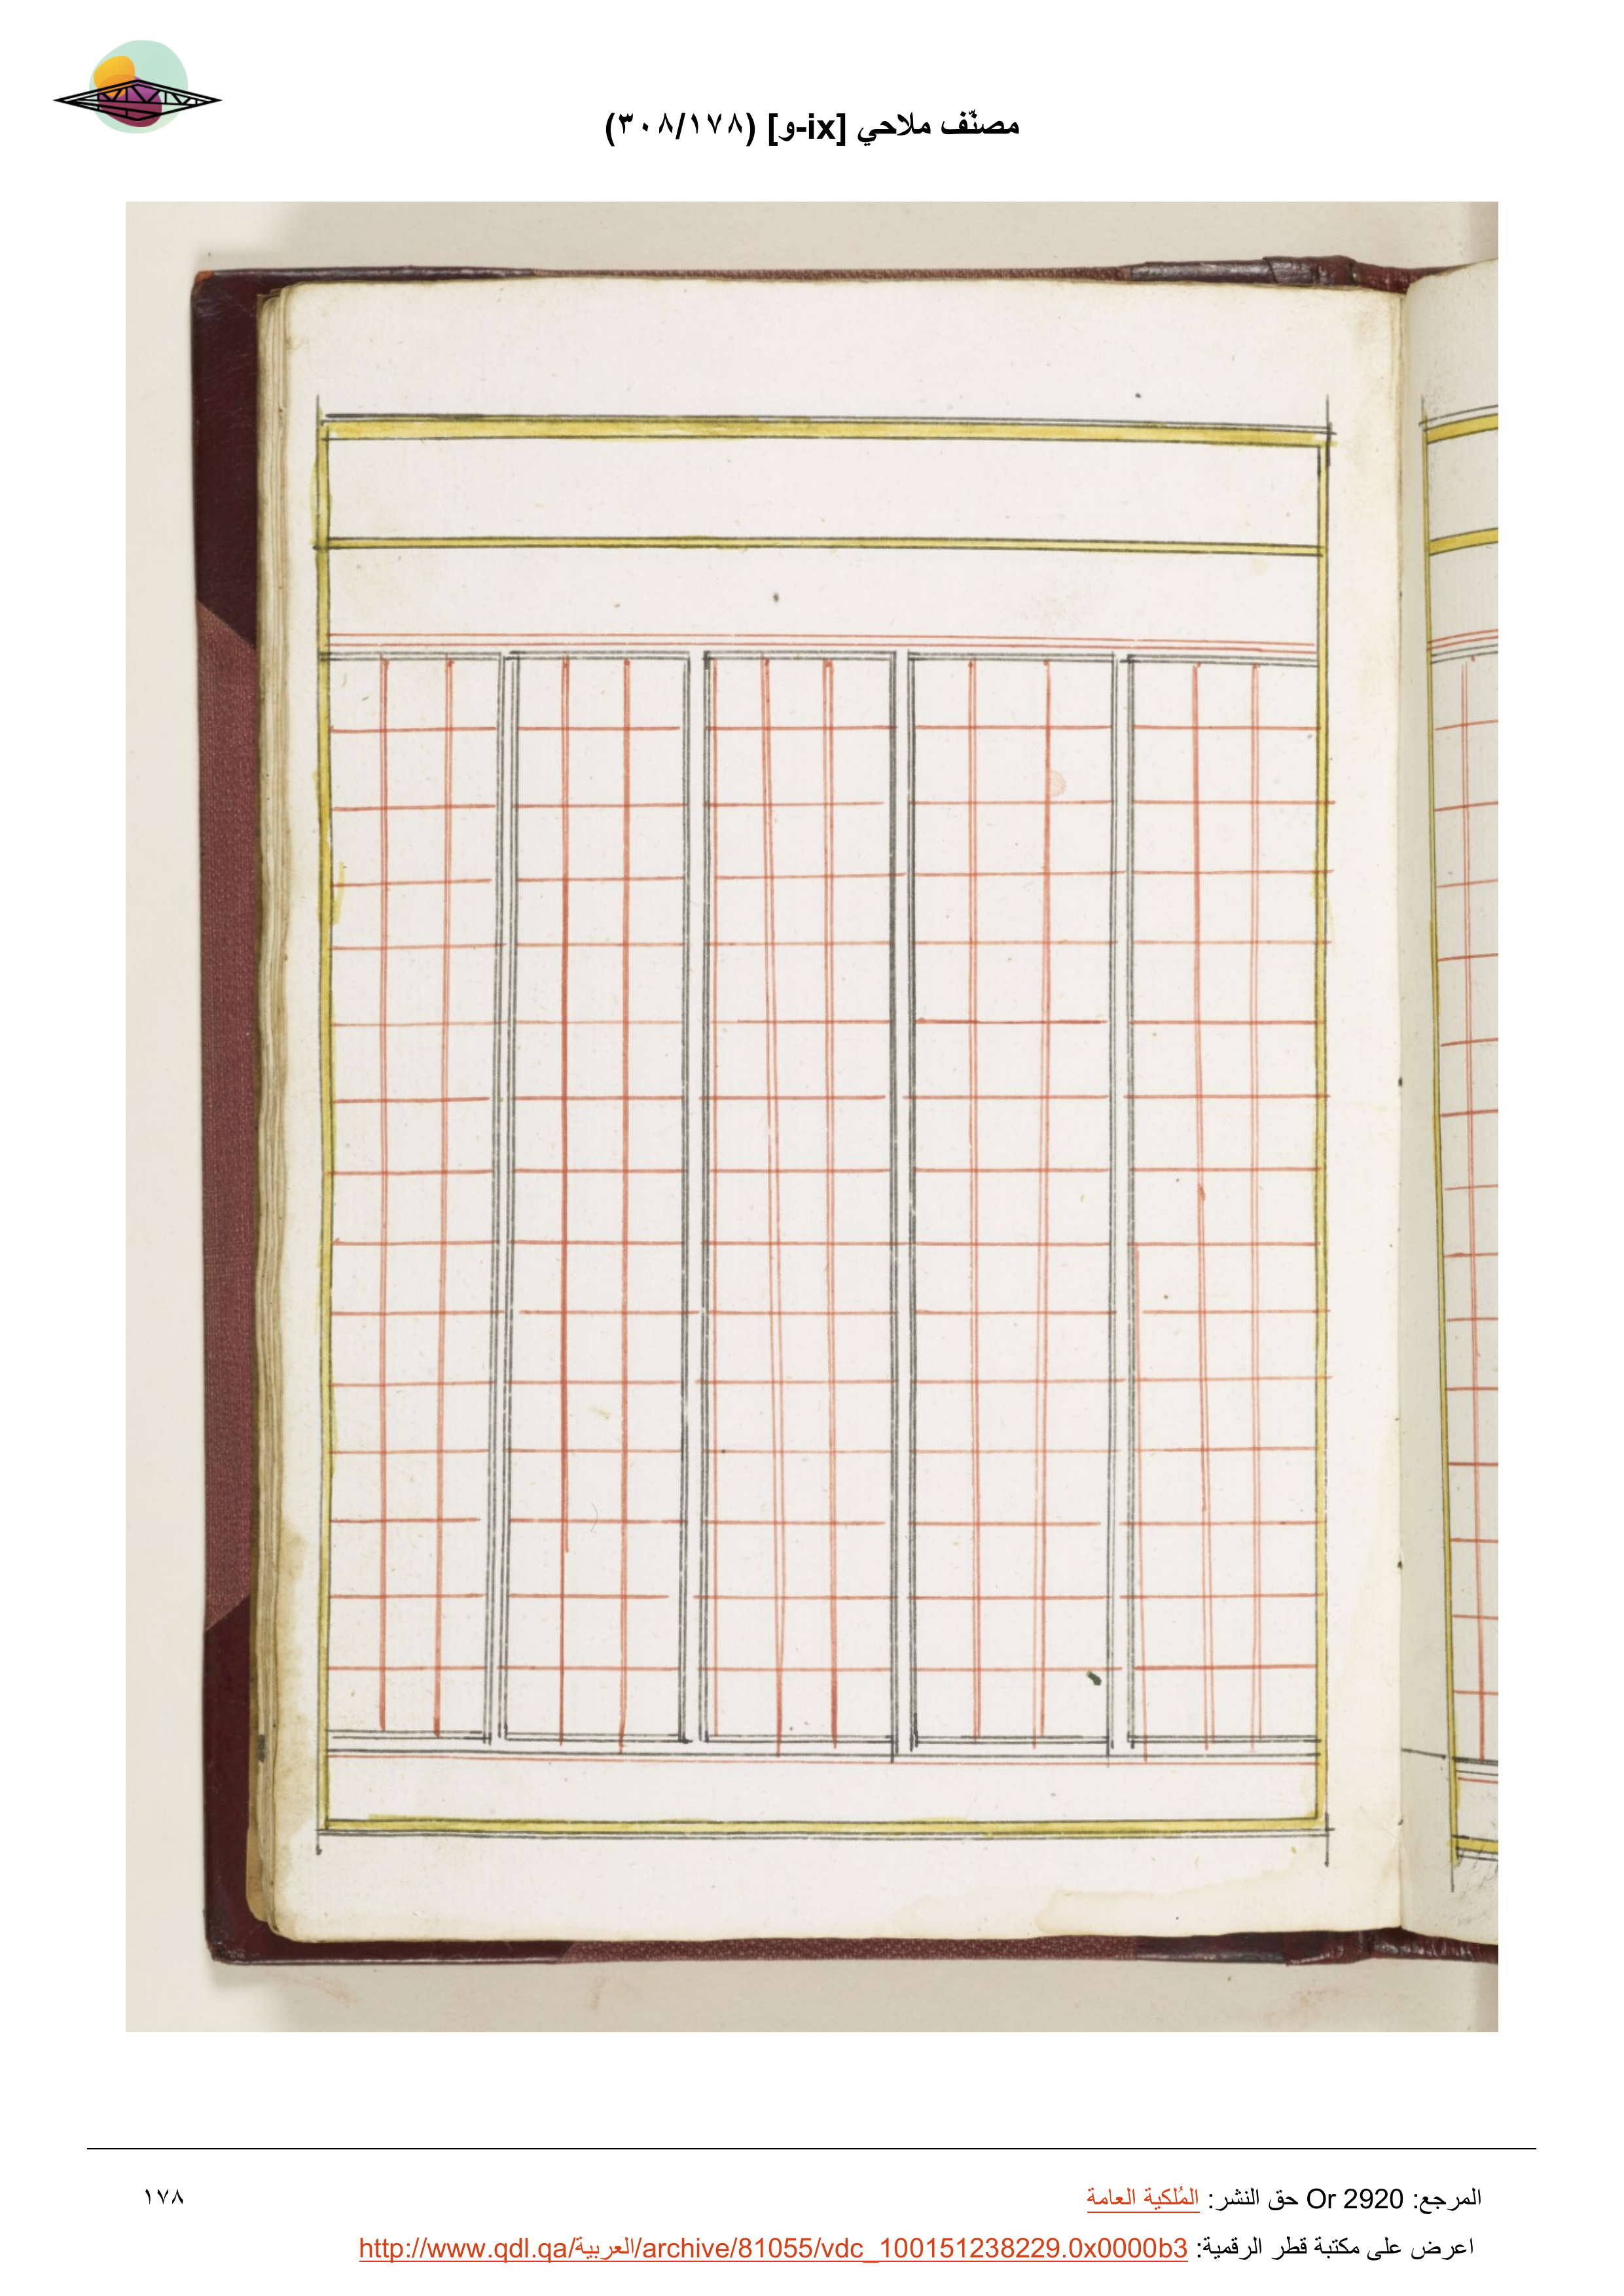 مصنّف ملاحي [ix-و] (٣٠٨/١٧٨)
المرجع: Or 2920 حق النشر: المُلكية العامة
١٧٨
اعرض على مكتبة قطر الرقمية: http://www.qdl.qa/العربية/archive/81055/vdc_100151238229.0x0000b3